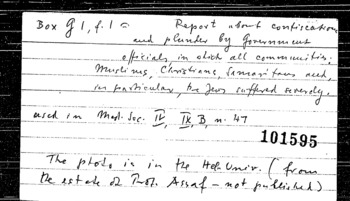 Box G 1, f. 1 = Report about confiscation
and plunder by Government
officials in which all communities:
Muslims, Christians, Samaritans and,
in particular, the Jews suffered severely.
used in Med. Soc. II, IX, B n. 47
101595
The photo is in the Heb. Univ. (from
the estate of Prof. Assaf - not published)